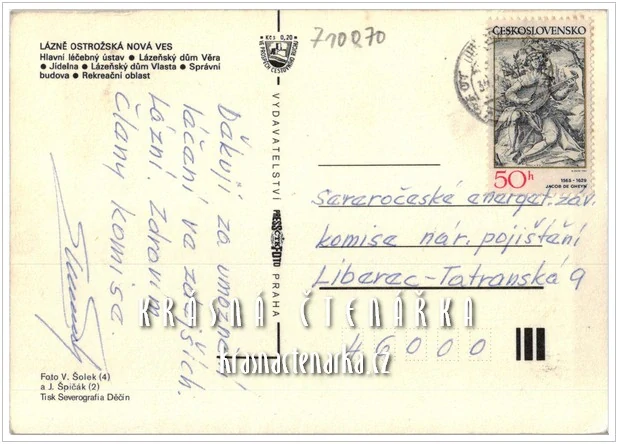 LÁZNĚ OSTROŽSKÁ NOVÁ VES
Hlavní léčebný ústav ● Lázeňský dům Věra
● Jídelna ● Lázeňský dům Vlasta ● Správní
budova ● Rekreační oblast
Kčs 0,20
710070
ČESKOSLOVENSKO
50h
1565 - 1629
JACOB DE GHEYN
Děkuji za umožnění
léčení ve zdejších
Lázní. Zdravím
Členy komise.
VYDAVATELSTVÍ PRESSFOTO PRAHA
Severočeské energet. záv.
komise nár. pojištění
Liberec-Tatranská 9
46000
KRÁSNÁ ČTENÁŘKA
krasnactenarka.cz
Foto V. Šolek (4)
a J. Špičák (2)
Tisk Severografia Děčín